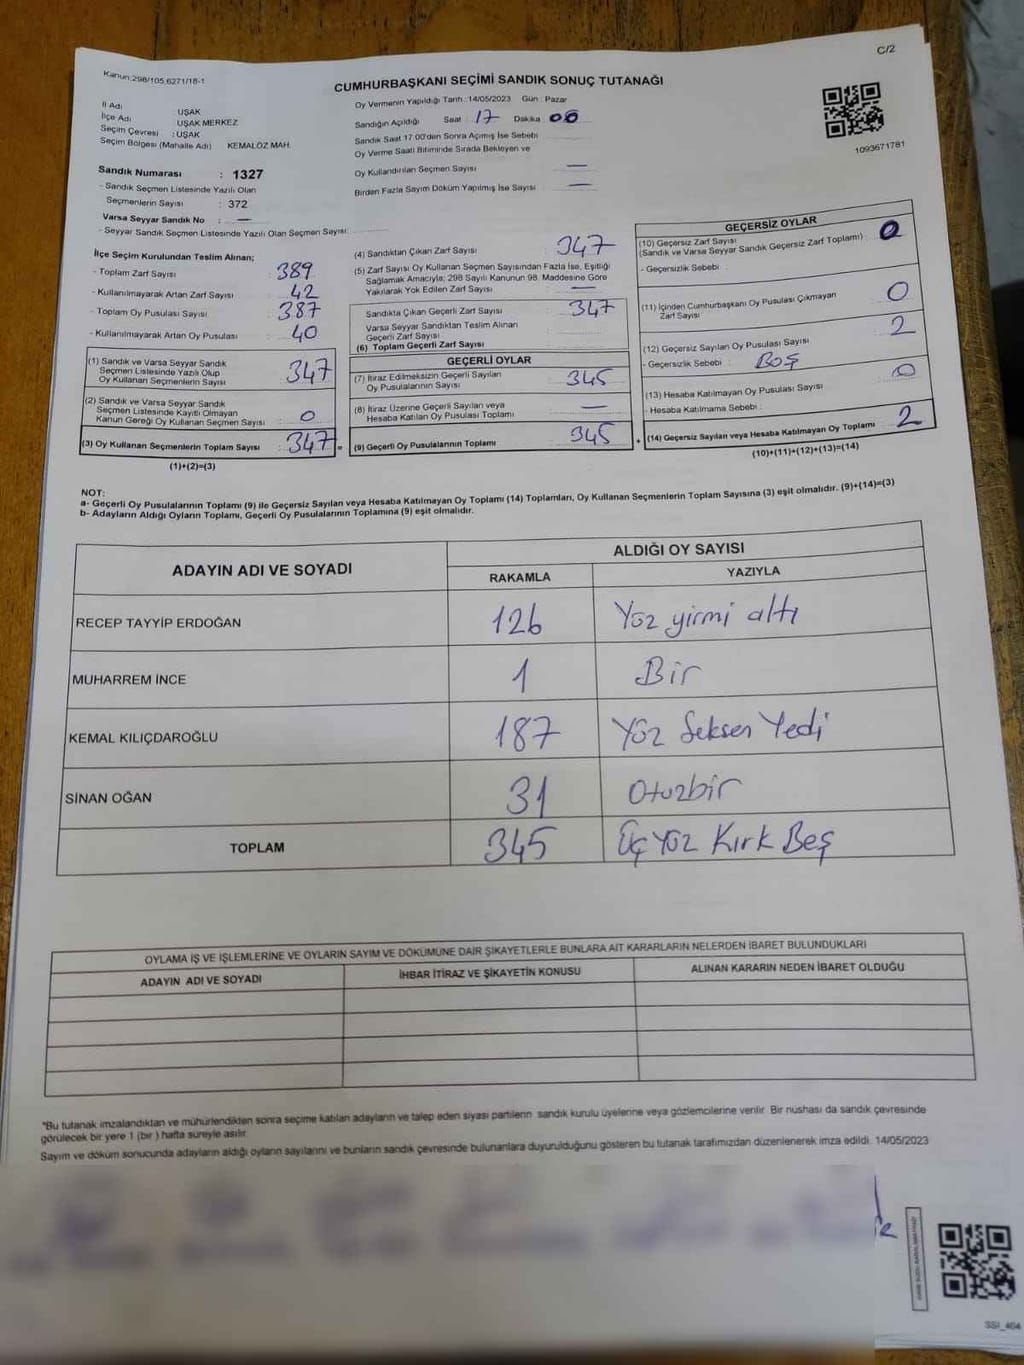 C/2
Kanun:298/105,6271/18-1
CUMHURBAŞKANI SEÇİMİ SANDIK SONUÇ TUTANAĞI
İl Adı UŞAK
İlçe Adı UŞAK MERKEZ
Seçim Çevresi : UŞAK
Seçim Bölgesi (Mahalle Adı) KEMALÖZ MAH.
Sandık Numarası : 1327
- Sandık Seçmen Listesinde Yazılı Olan
Seçmenlerin Sayısı : 372
Varsa Seyyar Sandık No : —
- Seyyar Sandık Seçmen Listesinde Yazılı Olan Seçmen Sayısı:
Oy Vermenin Yapıldığı Tarih :14/05/2023 Gün : Pazar
Sandığın Açıldığı Saat : 17 Dakika 00
Sandık Saat 17:00'den Sonra Açımış İse Sebebi
Oy Verme Saati Bitiminde Sırada Bekleyen ve
Oy Kullandırılan Seçmen Sayısı —
Birden Fazla Sayım Döküm Yapılmış İse Sayısı —
1093671781
İlçe Seçim Kurulundan Teslim Alınan;
- Toplam Zarf Sayısı : 389
- Kullanılmayarak Artan Zarf Sayısı : 42
- Toplam Oy Pusulası Sayısı : 387
- Kullanılmayarak Artan Oy Pusulası : 40
(1) Sandık ve Varsa Seyyar Sandık
Seçmen Listesinde Yazılı Olup
Oy Kullanan Seçmenlerin Sayısı : 347
(2) Sandık ve Varsa Seyyar Sandık
Seçmen Listesinde Kayıtlı Olmayan
Kanun Gereği Oy Kullanan Seçmen Sayısı : 0
(3) Oy Kullanan Seçmenlerin Toplam Sayısı : 347 =
(1)+(2)=(3)
(4) Sandıktan Çıkan Zarf Sayısı : 347
(5) Zarf Sayısı Oy Kullanan Seçmen Sayısından Fazla İse, Eşitliği
Sağlamak Amacıyla; 298 Sayılı Kanunun 98. Maddesine Göre
Yakılarak Yok Edilen Zarf Sayısı —
Sandıkta Çıkan Geçerli Zarf Sayısı : 347
Varsa Seyyar Sandıktan Teslim Alınan
Geçerli Zarf Sayısı
(6) Toplam Geçerli Zarf Sayısı
GEÇERLİ OYLAR
(7) İtiraz Edilmeksizin Geçerli Sayılan
Oy Pusulalarının Sayısı : 345
(8) İtiraz Üzerine Geçerli Sayılan veya
Hesaba Katılan Oy Pusulası Toplamı : —
(9) Geçerli Oy Pusulalarının Toplamı : 345 +
GEÇERSİZ OYLAR
(10) Geçersiz Zarf Sayısı
(Sandık ve Varsa Seyyar Sandık Geçersiz Zarf Toplamı) : 0
- Geçersizlik Sebebi :
(11) İçinden Cumhurbaşkanı Oy Pusulası Çıkmayan
Zarf Sayısı 0
(12) Geçersiz Sayılan Oy Pusulası Sayısı 2
- Geçersizlik Sebebi : BOŞ
(13) Hesaba Katılmayan Oy Pusulası Sayısı 0
- Hesaba Katılmama Sebebi :
(14) Geçersiz Sayılan veya Hesaba Katılmayan Oy Toplamı 2
(10)+(11)+(12)+(13)=(14)
NOT:
a- Geçerli Oy Pusulalarının Toplamı (9) ile Geçersiz Sayılan veya Hesaba Katılmayan Oy Toplamı (14) Toplamları, Oy Kullanan Seçmenlerin Toplam Sayısına (3) eşit olmalıdır. (9)+(14)=(3)
b- Adayların Aldığı Oyların Toplamı, Geçerli Oy Pusulalarının Toplamına (9) eşit olmalıdır.
ADAYIN ADI VE SOYADI
ALDIĞI OY SAYISI
RAKAMLA YAZIYLA
RECEP TAYYİP ERDOĞAN 126 Yüz yirmi altı
MUHARREM İNCE 1 Bir
KEMAL KILIÇDAROĞLU 187 Yüz Seksen Yedi
SİNAN OĞAN 31 Otuzbir
TOPLAM 345 Üç Yüz Kırk Beş
OYLAMA İŞ VE İŞLEMLERİNE VE OYLARIN SAYIM VE DÖKÜMÜNE DAİR ŞİKAYETLERLE BUNLARA AİT KARARLARIN NELERDEN İBARET BULUNDUKLARI
ADAYIN ADI VE SOYADI İHBAR İTİRAZ VE ŞİKAYETİN KONUSU ALINAN KARARIN NEDEN İBARET OLDUĞU
*Bu tutanak imzalandıktan ve mühürlendikten sonra seçime katılan adayların ve talep eden siyasi partilerin sandık kurulu üyelerine veya gözlemcilerine verilir. Bir nüshası da sandık çevresinde
görülecek bir yere 1 (bir ) hafta süreyle asılır.
Sayım ve döküm sonucunda adayların aldığı oyların sayılarını ve bunların sandık çevresinde bulunanlara duyurulduğunu gösteren bu tutanak tarafımızdan düzenlenerek imza edildi. 14/05/2023
SSI_464